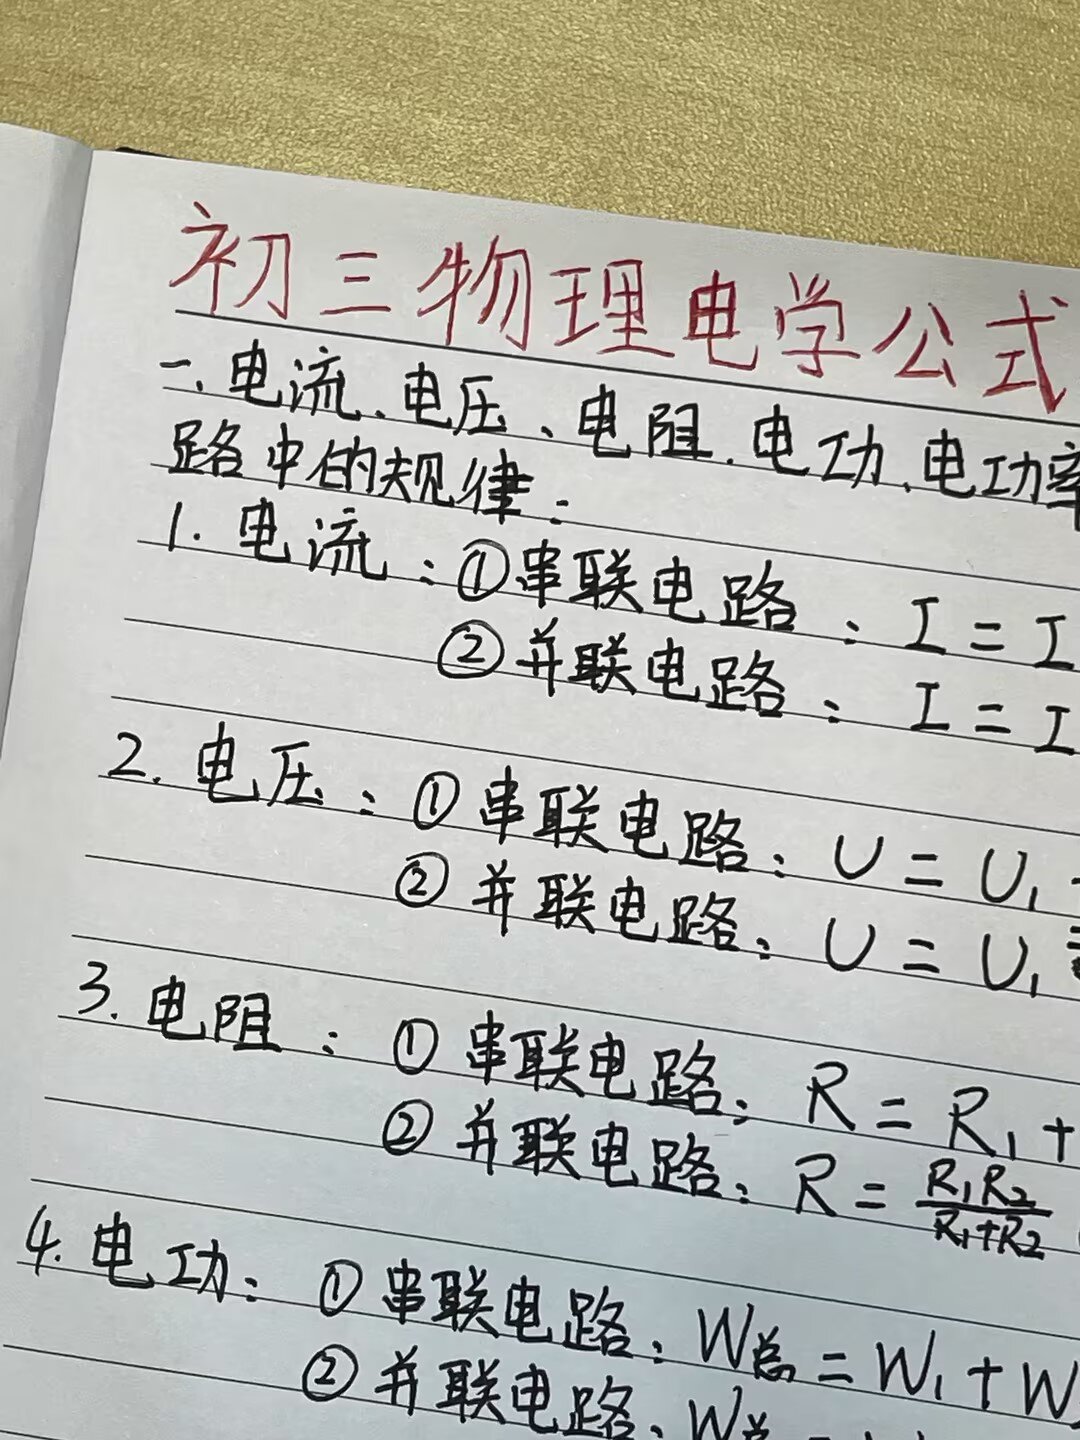 初三物理电学公式
一.电流、电压、电阻.电功.电功率
路中的规律:
1. 电流:①串联电路:I=I
②并联电路:I=I
2. 电压:①串联电路:U=U₁
②并联电路:U=U₁=
3. 电阻:①串联电路:R=R₁+
②并联电路:R=R₁R₂/R₁+R₂
4. 电功:①串联电路:W总=W₁+W
②并联电路:W总=